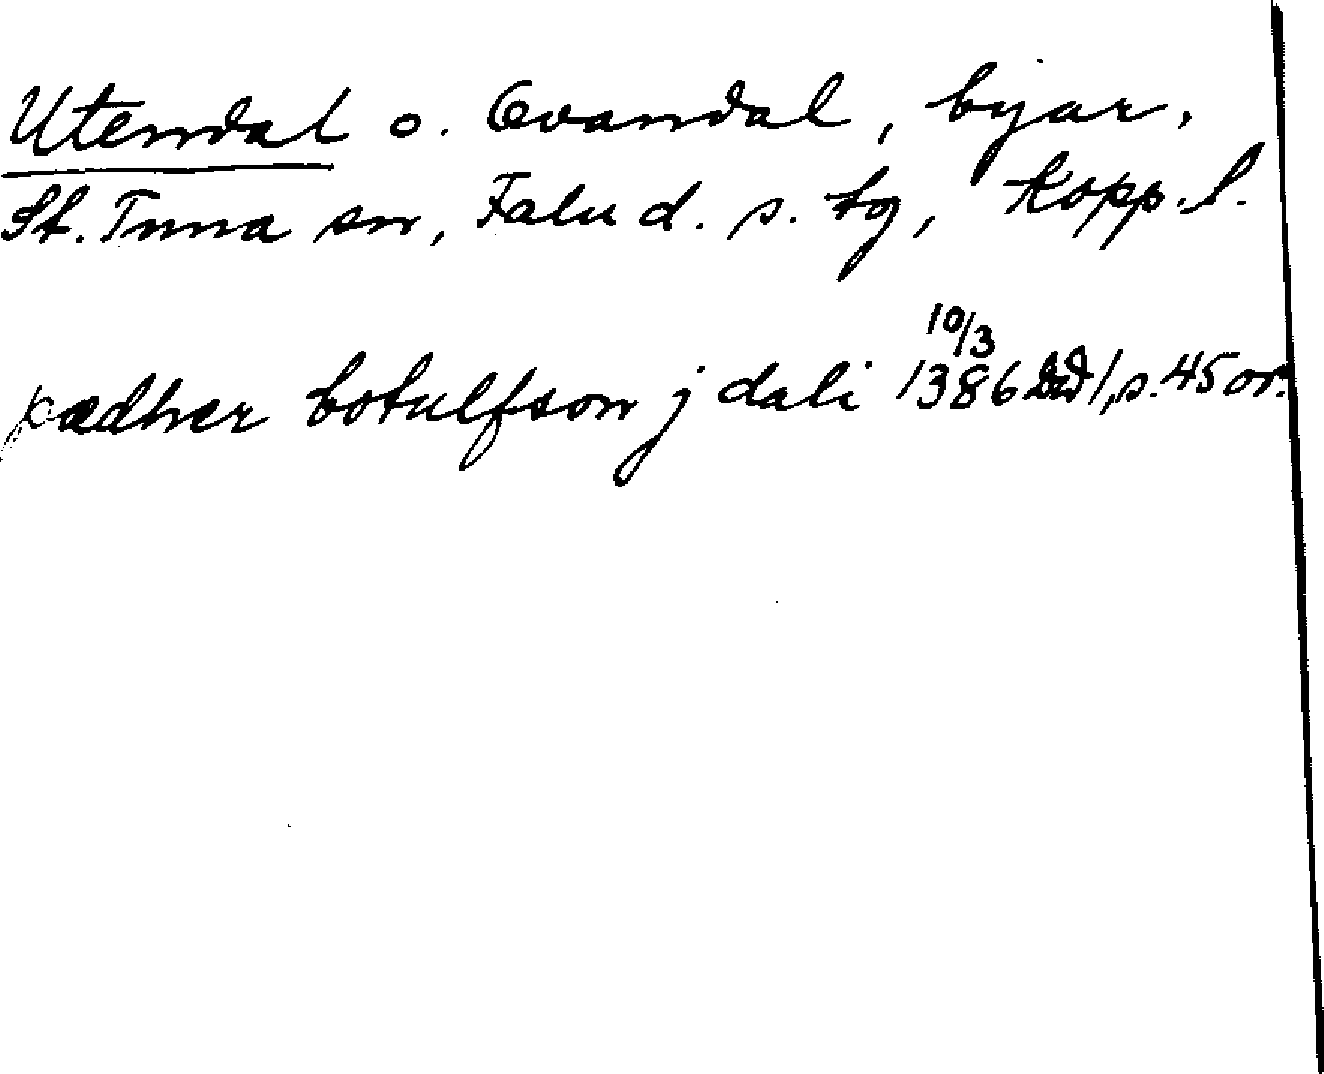 Utendal o. Ovandal, byar,
St. Tuna sn, Falu d. s. tg, Kopp. l.
10/3
pædher botulfson j dali 1386 DD 1, s. 45 or.